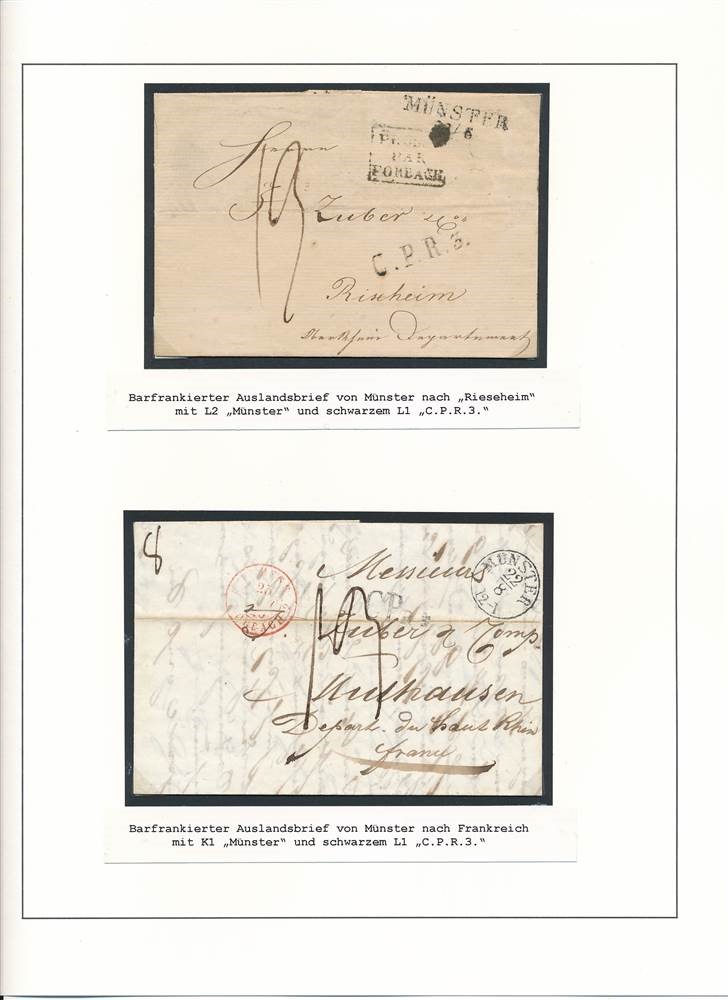 MÜNSTER
/6
PAR
FORBACH
Herren
Zuber & Co
C.P.R.3.
Rixheim
Oberrhein Departement
Barfrankierter Auslandsbrief von Münster nach „Rieseheim“
mit L2 „Münster“ und schwarzem L1 „C.P.R.3.“
8
MÜNSTER
22
8
12-1
Messieurs
CP
Zuber & Comp
Mulhausen
Depart. du haut Rhin
france
Barfrankierter Auslandsbrief von Münster nach Frankreich
mit K1 „Münster“ und schwarzem L1 „C.P.R.3.“